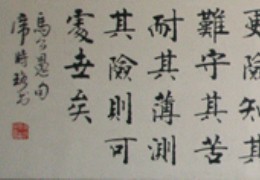 更險知其
難守其苦
耐其薄測
其險則可
處世矣
馬公愚句
席時